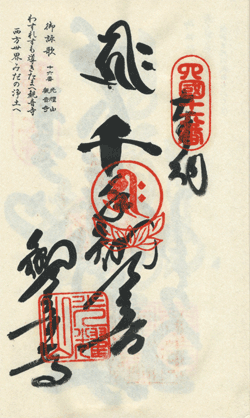 四國十六番
奉納
千手観世音
観音寺
御詠歌
十六番 光耀山
観音寺
わすれずも導きたまへ観音寺
西方世界みだの浄土へ